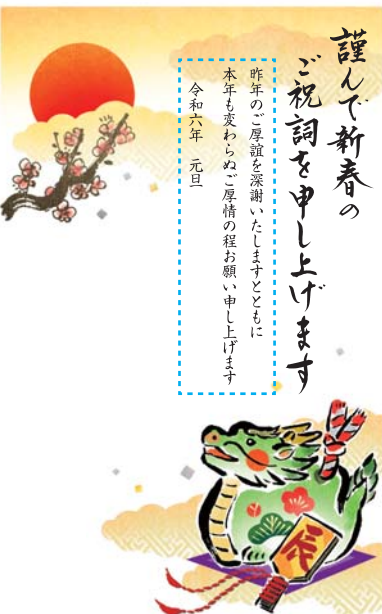 謹んで新春の
ご祝詞を申し上げます
昨年のご厚誼を深謝いたしますとともに
本年も変わらぬご厚情の程お願い申し上げます
令和六年　元旦
辰